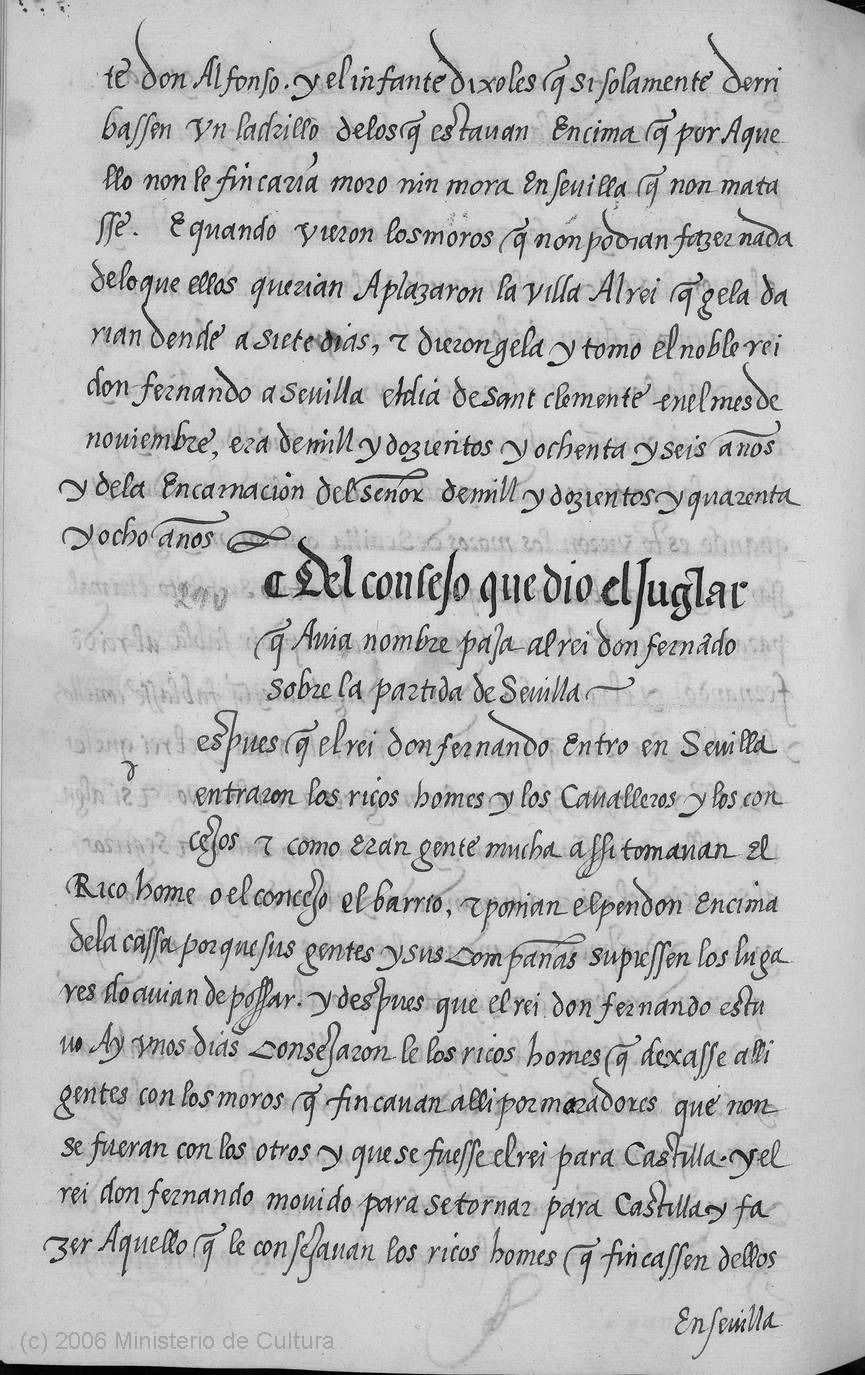 te don Alfonso. y el infante dixoles q̃ si solamente derri
bassen vn ladrillo delos q̃ estauan Encima q̃ por Aque
llo non le fincaria moro nin mora En seuilla q̃ non mata
sse. E quando vieron los moros q̃ non podian fazer nada
delo que ellos querian Aplazaron la villa Al rei q̃ gela da
rian dende a siete dias, τ dierongela y tomo el noble rei
don fernando a Seuilla el dia de Sant clemente en el mes de
nouiembre, era de mill y dozientos y ochenta y seis años
y dela Encarnaçion del señor de mill y dozientos y quarenta
y ocho años
ℂ Del consejo que dio el Juglar
q̃ Auia nombre paja al rei don fernãdo
sobre la partida de Seuilla
d espues q̃ el rei don fernando Entro en Seuilla
entraron los ricos homes y los Caualleros y los con
cejos τ como eran gente mucha assi tomauan el
Rico home o el concejo el barrio, τ ponian el pendon Encima
dela cassa porque sus gentes y sus compañas supiessen los luga
res do auian de possar. y despues que el rei don fernando estu
uo Ay vnos dias Consejaron le los ricos homes q̃ dexasse alli
gentes con los moros q̃ fincauan alli por moradores que non
se fueran con los otros y que se fuesse el rei para Castilla. y el
rei don fernando mouido para se tornar para Castilla y fa
zer Aquello q̃ le consejauan los ricos homes q̃ fincassen dellos
En seuilla
(c) 2006 Ministerio de Cultura